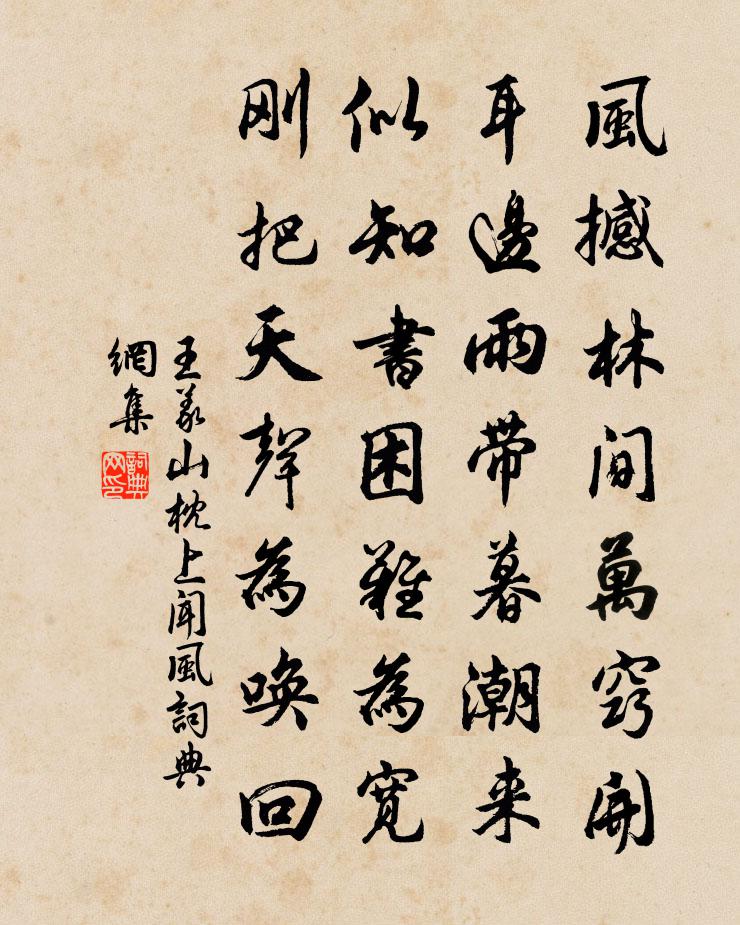 風撼林間萬竅開
耳邊雨帶暮潮来
似知書困難為寬
刚把天聲為唤回
王義山枕上聞風詞典
網集
詞典
网印